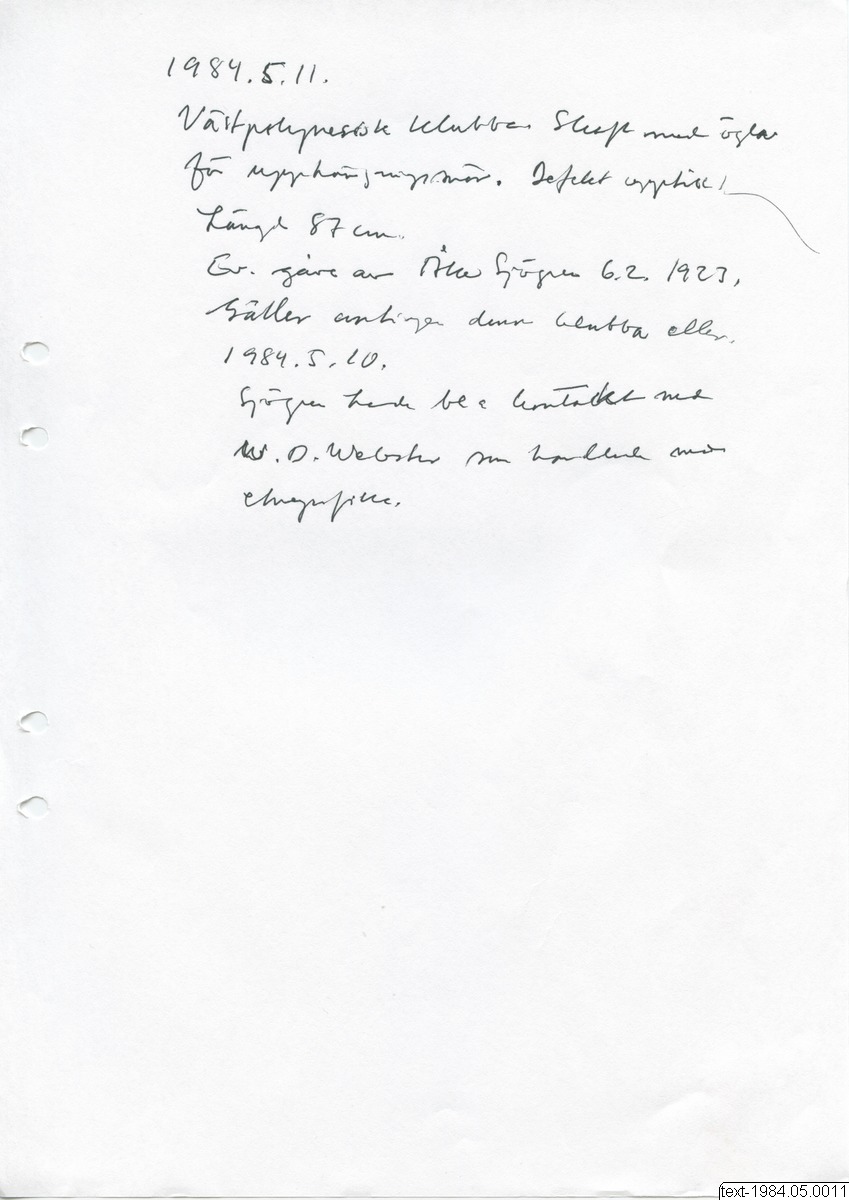 1984.5.11.
Västpolynesisk klubba. Skaft med öglor
för upphängningssnör. Defekt upptill!
Längd 87 cm.
Ev. gåva av Åke Sjögren 6.2. 1923,
Gäller antingen denna klubba eller.
1984.5.10.
Sjögren hade bl a kontakt med
W. D. Webster som handlade med
etnografika.
text-1984.05.0011